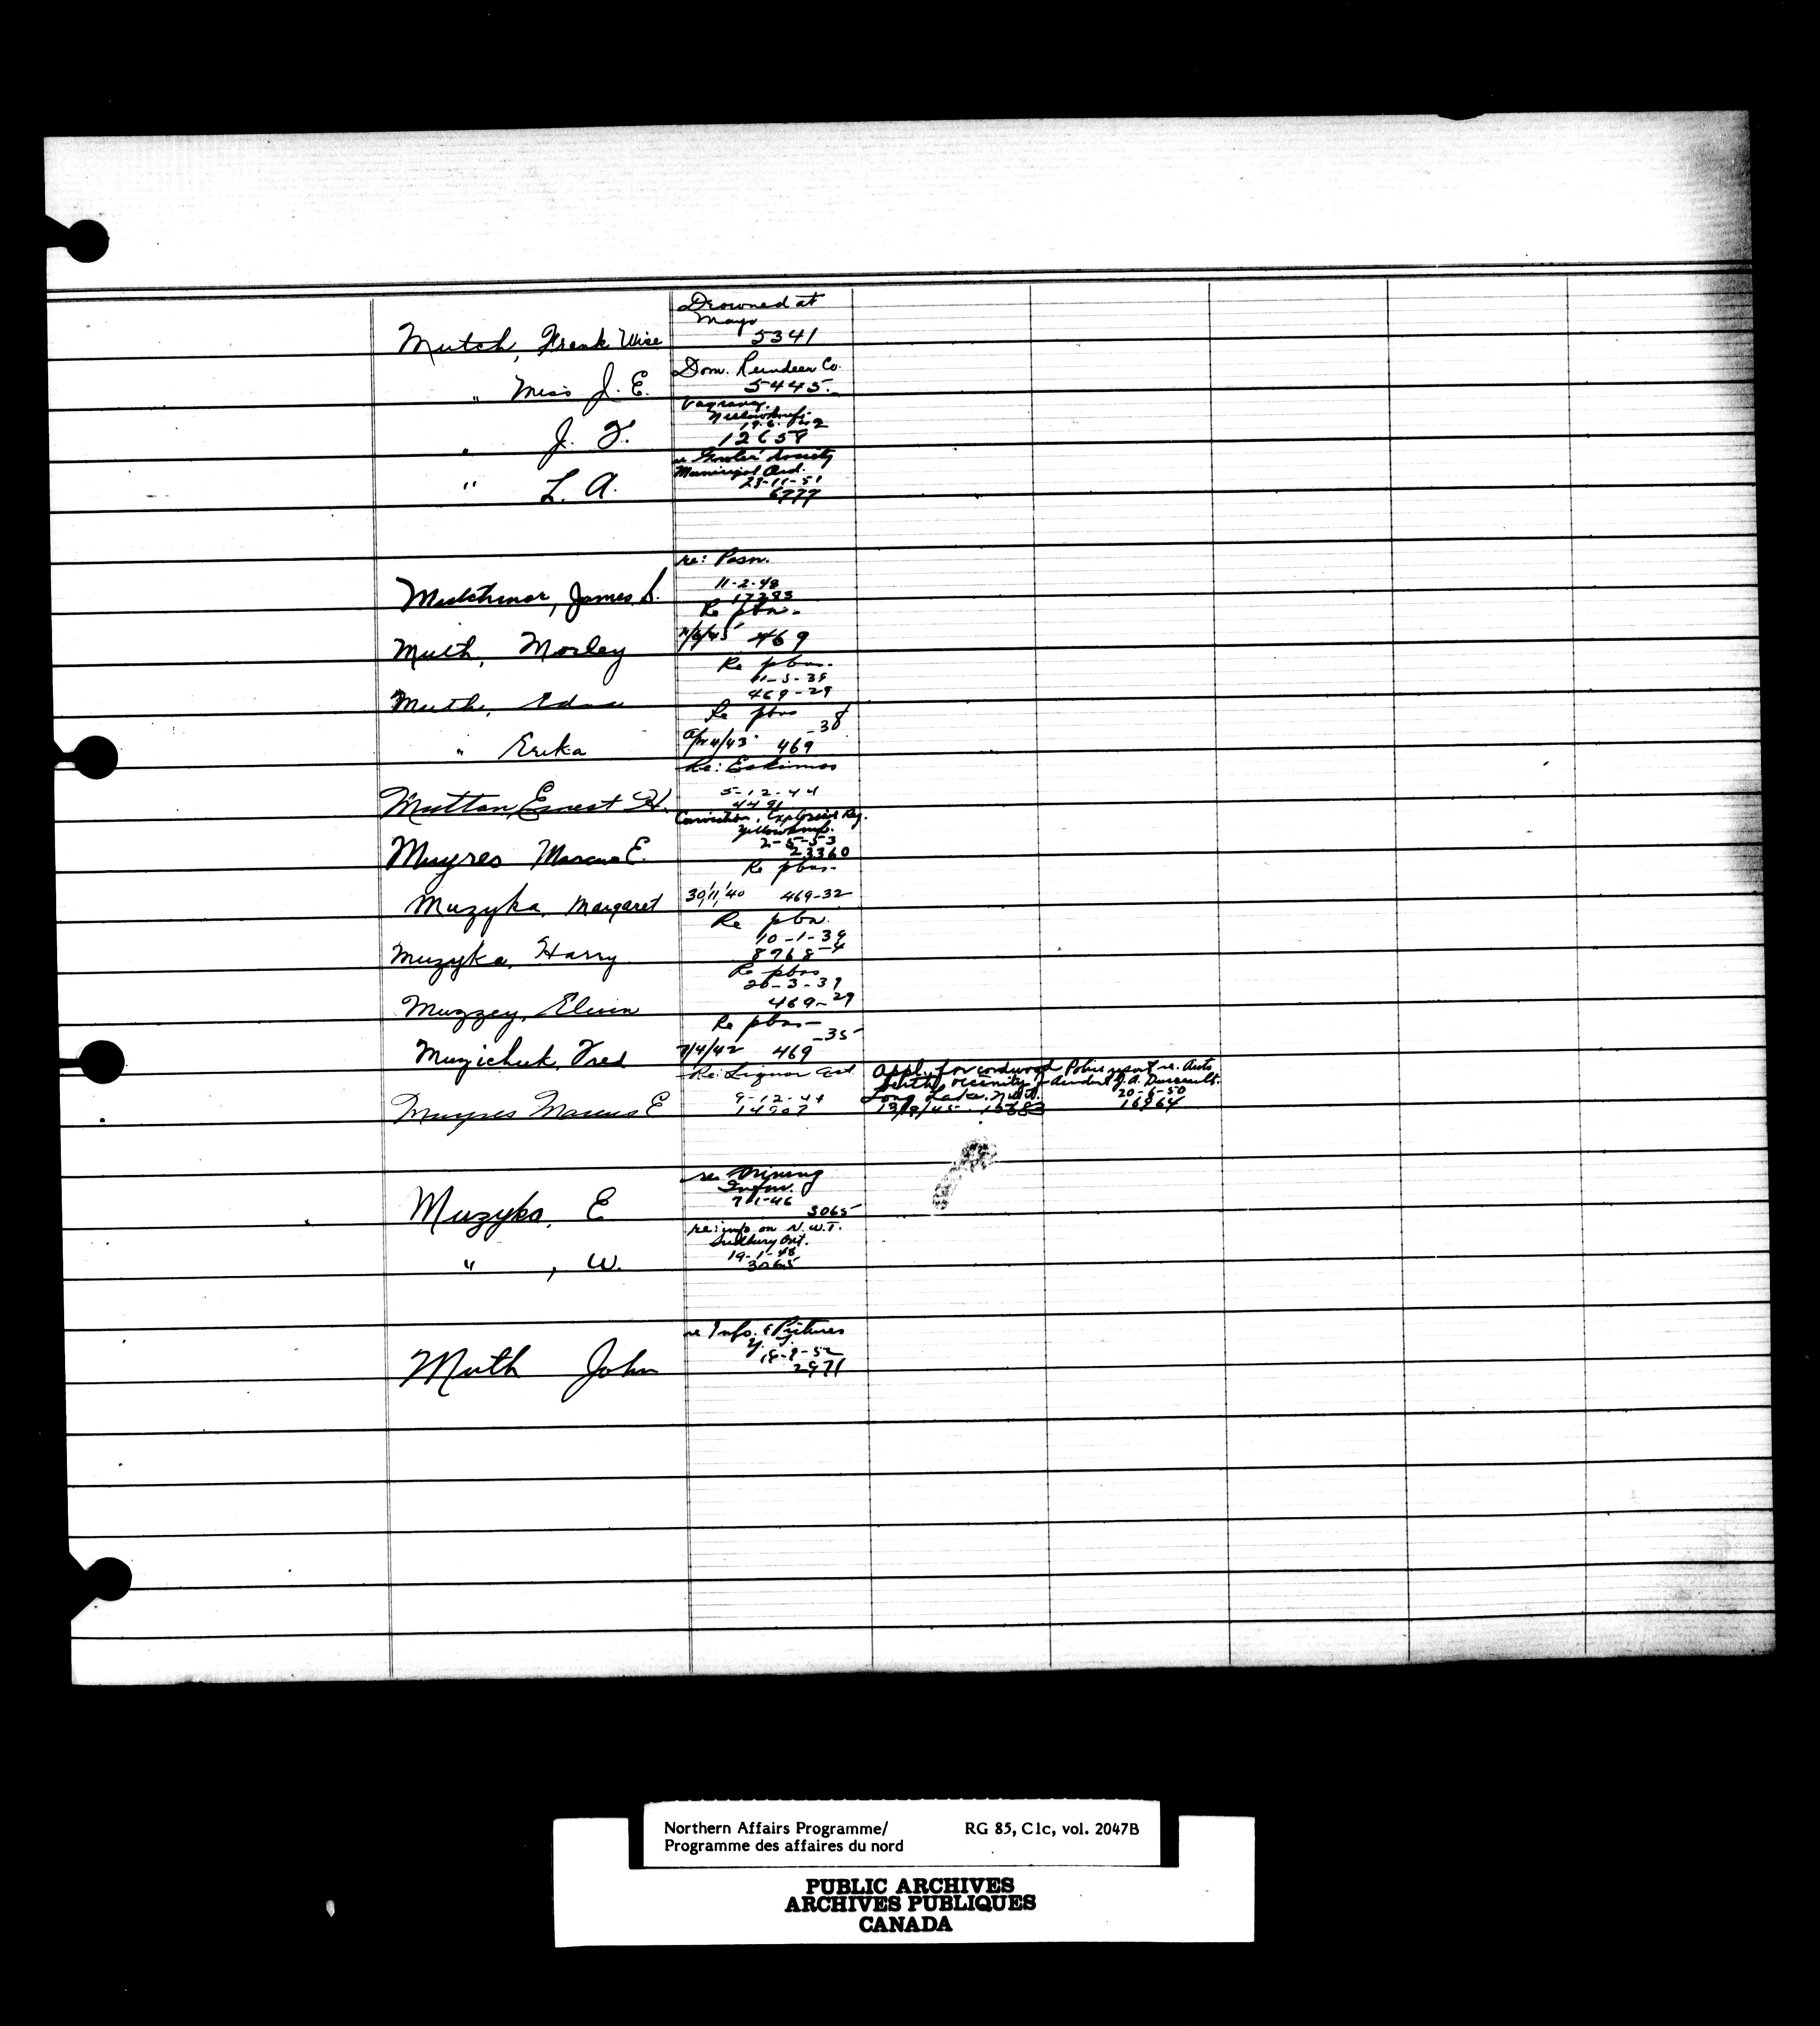 Drowned at
Mayo
Mutch, Frank Wise 5341
Dom. Reindeer Co.
" Miss J. E. 5445.
Vagrancy.
Yellowknife
19.6.42
" J. F. 12658
re Society
Municipal Ord.
23-11-51
" L. A. 6777
re: Posn.
11-2-48
Mutchmor, James S. 17283
Re pbn.
Muth, Morley 469
Re pbns.
11-5-39
469-29
Muth, Edna
Re pbns
-38
" Erika Apr 4/43 469
Re: Eskimos
5-12-44
Mutton, Ernest H. 4491
Conviction, Explosives Reg.
Yellowknife.
2-5-53
Muyres Marcus E. 23360
Re pbns.
Muzyka, Margaret 30/11/40 469-32
Re pbn.
10-1-39
Muzyka, Harry 8768-4
Re pbns
26-3-39
Muzzey, Elwin 469-29
Re pbns-
-35
Muzichuk, Fred 7/4/42 469
Re: Liquor Act Appl. for cordwood Police report re. Auto
berth, vicinity Accident J.A.
9-12-44 Long Lake, N.W.T. 20-6-50
Muyres Marcus E 14907 16964
re Mining
Infor.
7-1-46
Muzyka, E 3065
re: info on N.W.T.
Sudbury Ont.
19-1-48
" , W. 3065
re Info. & Pictures
Y.T.
18-9-52
Muth John 2971
Northern Affairs Programme/ RG 85, C1c, vol. 2047B
Programme des affaires du nord
PUBLIC ARCHIVES
ARCHIVES PUBLIQUES
CANADA